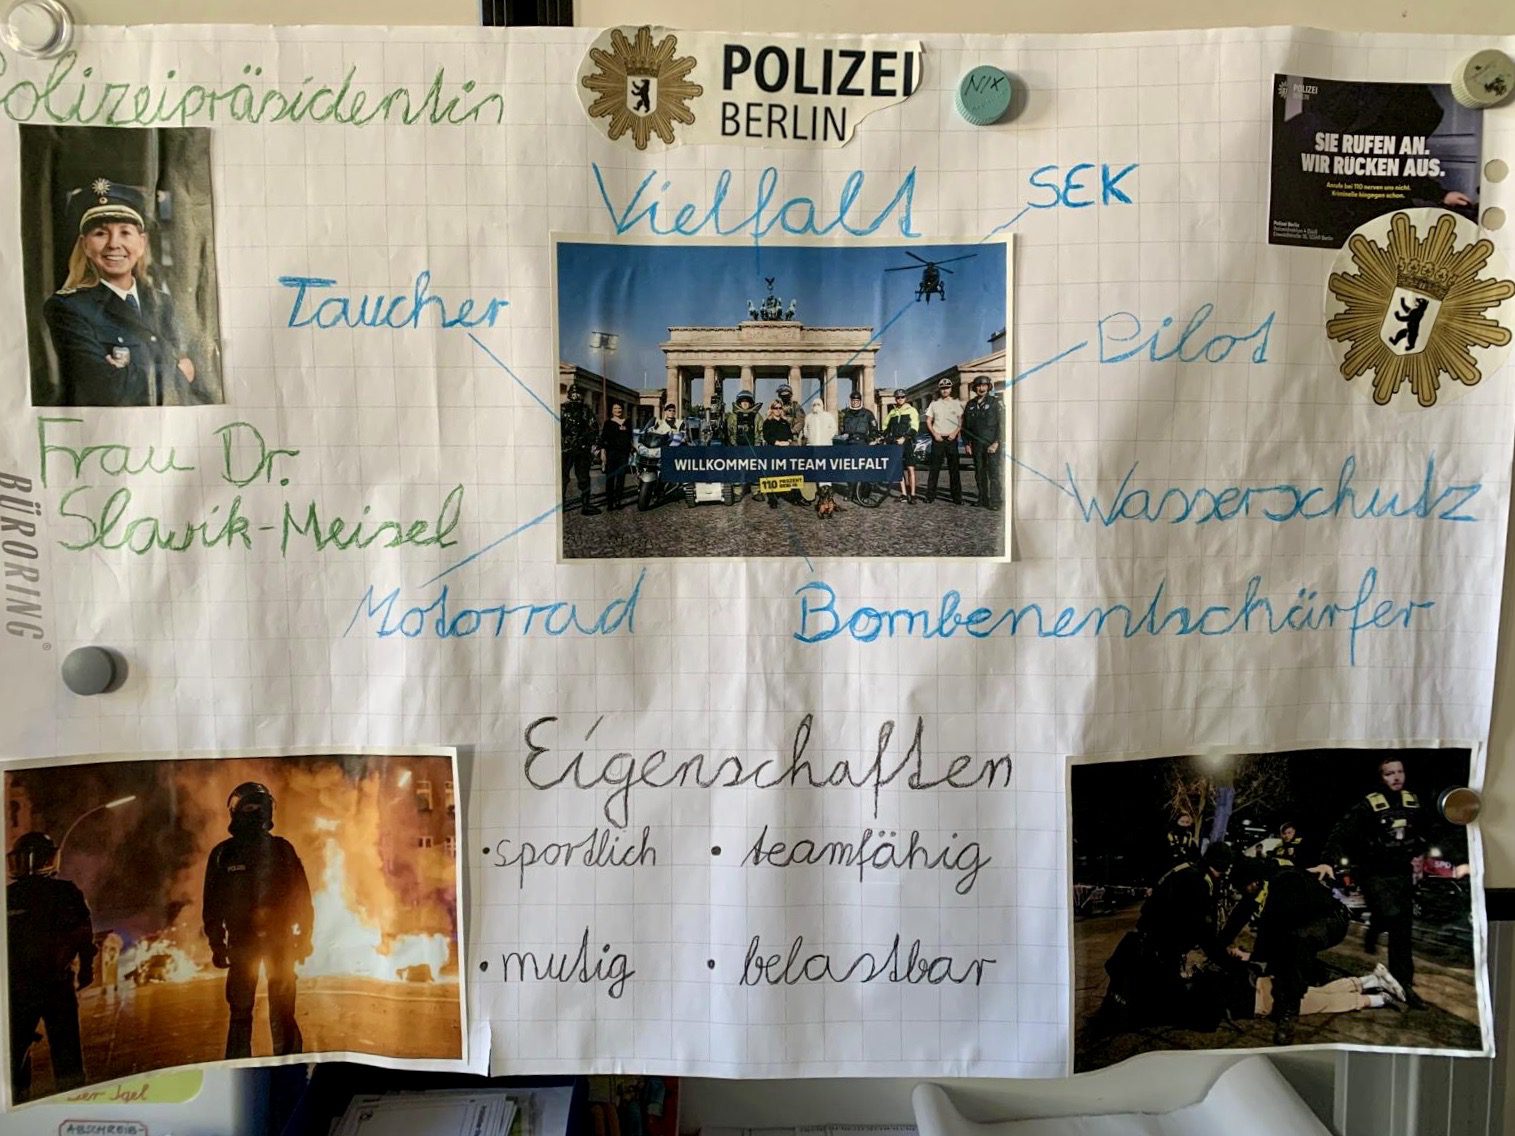 Polizeipräsidentin
POLIZEI
BERLIN
NIX
POLIZEI
BERLIN
SIE RUFEN AN.
WIR RÜCKEN AUS.
Anrufe bei 110 nerven uns nicht.
Kriminelle hingegen schon.
Polizei Berlin
Vielfalt
SEK
Taucher
Pilot
WILLKOMMEN IM TEAM VIELFALT
110 PROZENT
BERLIN
Frau Dr.
Slowik-Meisel
Wasserschutz
Motorrad
Bombenentschärfer
BÜRORING
Eigenschaften
• sportlich
• teamfähig
• mutig
• belastbar
POLIZEI
SPD
Der Igel
ABSCHREIB-